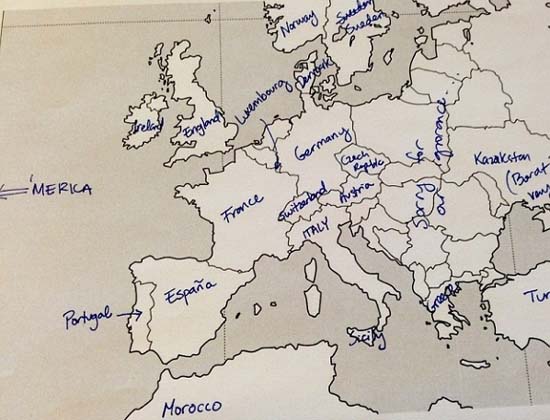 Norway
Sweden
Sweden
Denmark
Luxembourg
Ireland
England
Germany
Czech
Republic
Sorry for
our ignorance.
Kazakstan
(Borat
'MERICA
France
Switzerland
Austria
ITALY
España
Portugal
Greece
Tur
Sicily
Morocco